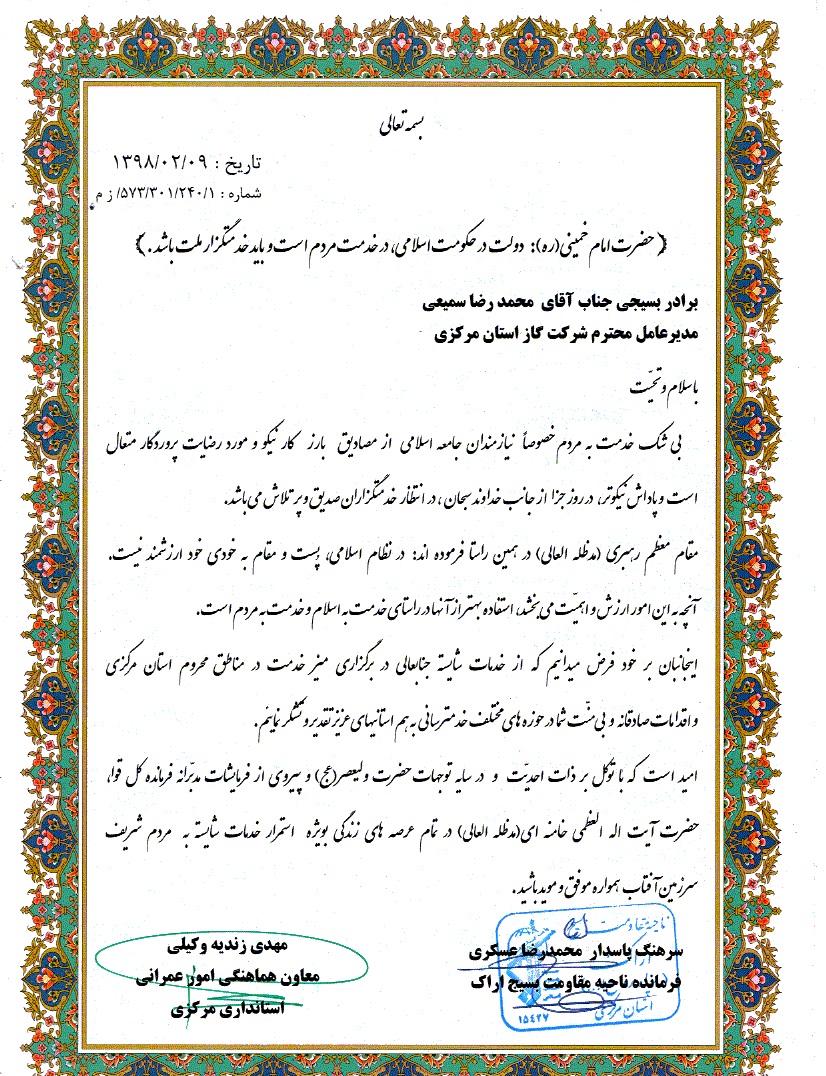 بسمه تعالی
تاریخ : ۱۳۹۸/۰۲/۰۹
شماره : ۵۷۳/۳۰۱/۲۴۰/۱/ ز م
﴿ حضرت امام خمینی(ره): دولت در حکومت اسلامی، در خدمت مردم است و باید خدمتگزار ملت باشد . ﴾
برادر بسیجی جناب آقای محمد رضا سمیعی
مدیرعامل محترم شرکت گاز استان مرکزی
باسلام و تحیّت
بی شک خدمت به مردم خصوصاً نیازمندان جامعه اسلامی از مصادیق بارز کار نیکو و مورد رضایت پروردگار متعال
است و پاداش نیکوتر، در روز جزا از جانب خداوند سبحان ، در انتظار خدمتگزاران صدیق و پر تلاش می باشد.
مقام معظم رهبری (مدظله العالی) در همین راستا فرموده اند: در نظام اسلامی، پست و مقام به خودی خود ارزشمند نیست.
آنچه به این امور ارزش و اهمیّت می بخشد، استفاده بهتر از آنها در راستای خدمت به اسلام و خدمت به مردم است.
اینجانبان بر خود فرض میدانیم که از خدمات شایسته جنابعالی در برگزاری میز خدمت در مناطق محروم استان مرکزی
و اقدامات صادقانه و بی منّت شما در حوزه های مختلف خدمترسانی به هم استانیهای عزیز تقدیر و تشکر نمایئم.
امید است که با توکل بر ذات احدیّت و در سایه توجهات حضرت ولیعصر(عج) و پیروی از فرمایشات مدبّرانه فرمانده کل قوا،
حضرت آیت اله العظمی خامنه ای(مدظله العالی) در تمام عرصه های زندگی بویژه استمرار خدمات شایسته به مردم شریف
سرزمین آفتاب همواره موفق و موید باشید .
سرهنگ پاسدار محمدرضا عسکری
فرمانده ناحیه مقاومت بسیج اراک
استان مرکزی
۱۵۴۲۷
مهدی زندیه وکیلی
معاون هماهنگی امور عمرانی
استانداری مرکزی